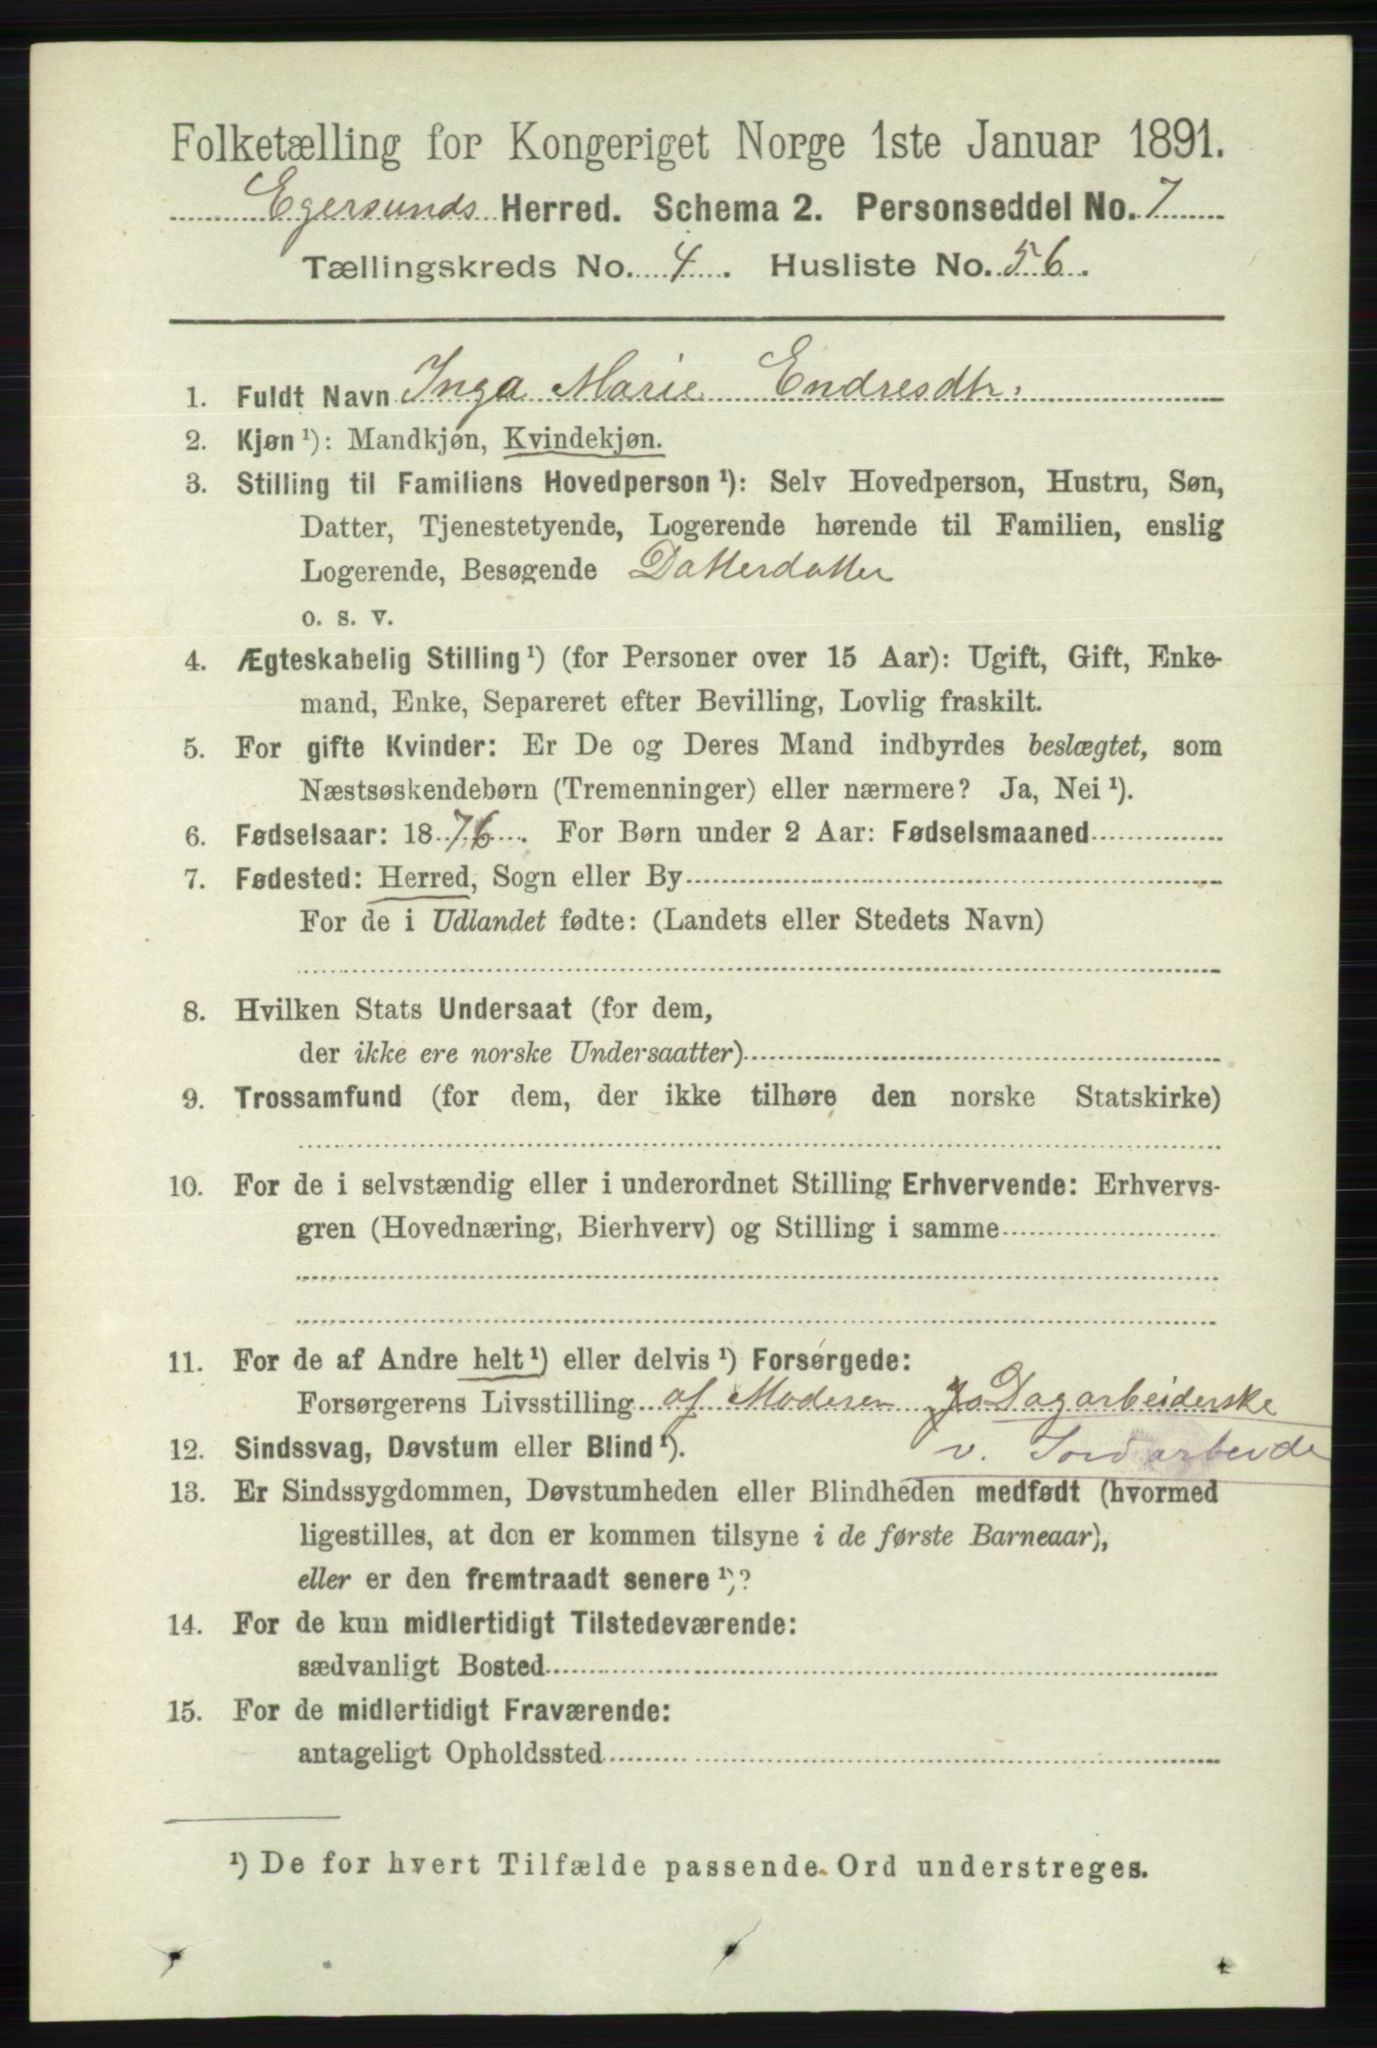 Folketælling for Kongeriget Norge 1ste Januar 1891.
Egersunds Herred. Schema 2. Personseddel No. 7
Tællingskreds No. 4. Husliste No. 56.
1. Fuldt Navn Inga Marie Endresdtr:
2. Kjøn ¹): Mandkjøn, Kvindekjøn.
3. Stilling til Familiens Hovedperson ¹): Selv Hovedperson, Hustru, Søn,
Datter, Tjenestetyende, Logerende hørende til Familien, enslig
Logerende, Besøgende Datterdatter
o. s. v.
4. Ægteskabelig Stilling ¹) (for Personer over 15 Aar): Ugift, Gift, Enke-
mand, Enke, Separeret efter Bevilling, Lovlig fraskilt.
5. For gifte Kvinder: Er De og Deres Mand indbyrdes beslægtet, som
Næstsøskendebørn (Tremenninger) eller nærmere? Ja, Nei ¹).
6. Fødselsaar: 1876. For Børn under 2 Aar: Fødselsmaaned
7. Fødested: Herred, Sogn eller By
For de i Udlandet fødte: (Landets eller Stedets Navn)
8. Hvilken Stats Undersaat (for dem,
der ikke ere norske Undersaatter)
9. Trossamfund (for dem, der ikke tilhøre den norske Statskirke)
10. For de i selvstændig eller i underordnet Stilling Erhvervende: Erhvervs-
gren (Hovednæring, Bierhverv) og Stilling i samme
11. For de af Andre helt ¹) eller delvis ¹) Forsørgede:
Forsørgerens Livsstilling af Moderen Dagarbeiderske
12. Sindssvag, Døvstum eller Blind ¹). v. Jordarbeide
13. Er Sindssygdommen, Døvstumheden eller Blindheden medfødt (hvormed
ligestilles, at den er kommen tilsyne i de første Barneaar),
eller er den fremtraadt senere ¹)?
14. For de kun midlertidigt Tilstedeværende:
sædvanligt Bosted
15. For de midlertidigt Fraværende:
antageligt Opholdssted
¹) De for hvert Tilfælde passende Ord understreges.